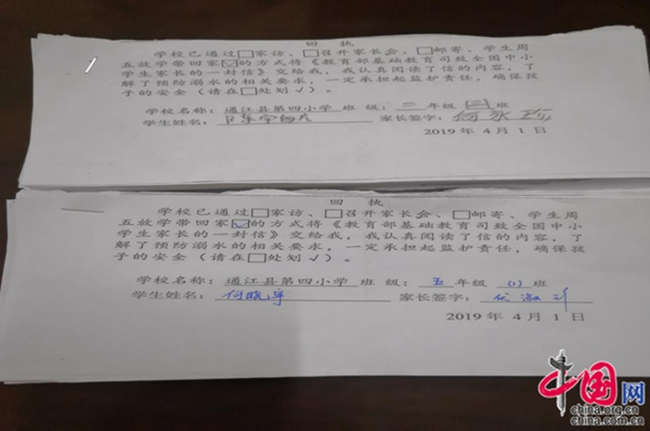 回 执
学校已通过□家访、□召开家长会、□邮寄、学生周
五放学带回家☑的方式将《教育部基础教育司致全国中小
学生家长的一封信》交给我,我认真阅读了信的内容,了
解了预防溺水的相关要求,一定承担起监护责任,确保孩
子的安全(请在□处划√)。
学校名称:通江县第四小学 班 级:二 年级 (二) 班
学生姓名: 家长签字:
2019 年 4 月 1 日
回 执
学校已通过□家访、□召开家长会、□邮寄、学生周
五放学带回家☑的方式将《教育部基础教育司致全国中小
学生家长的一封信》交给我,我认真阅读了信的内容,了
解了预防溺水的相关要求,一定承担起监护责任,确保孩
子的安全(请在□处划√)。
学校名称:通江县第四小学 班 级:五 年级 (1) 班
学生姓名:何晓 家长签字:
2019 年 4 月 1 日
中国网
china.org.cn
china.com.cn